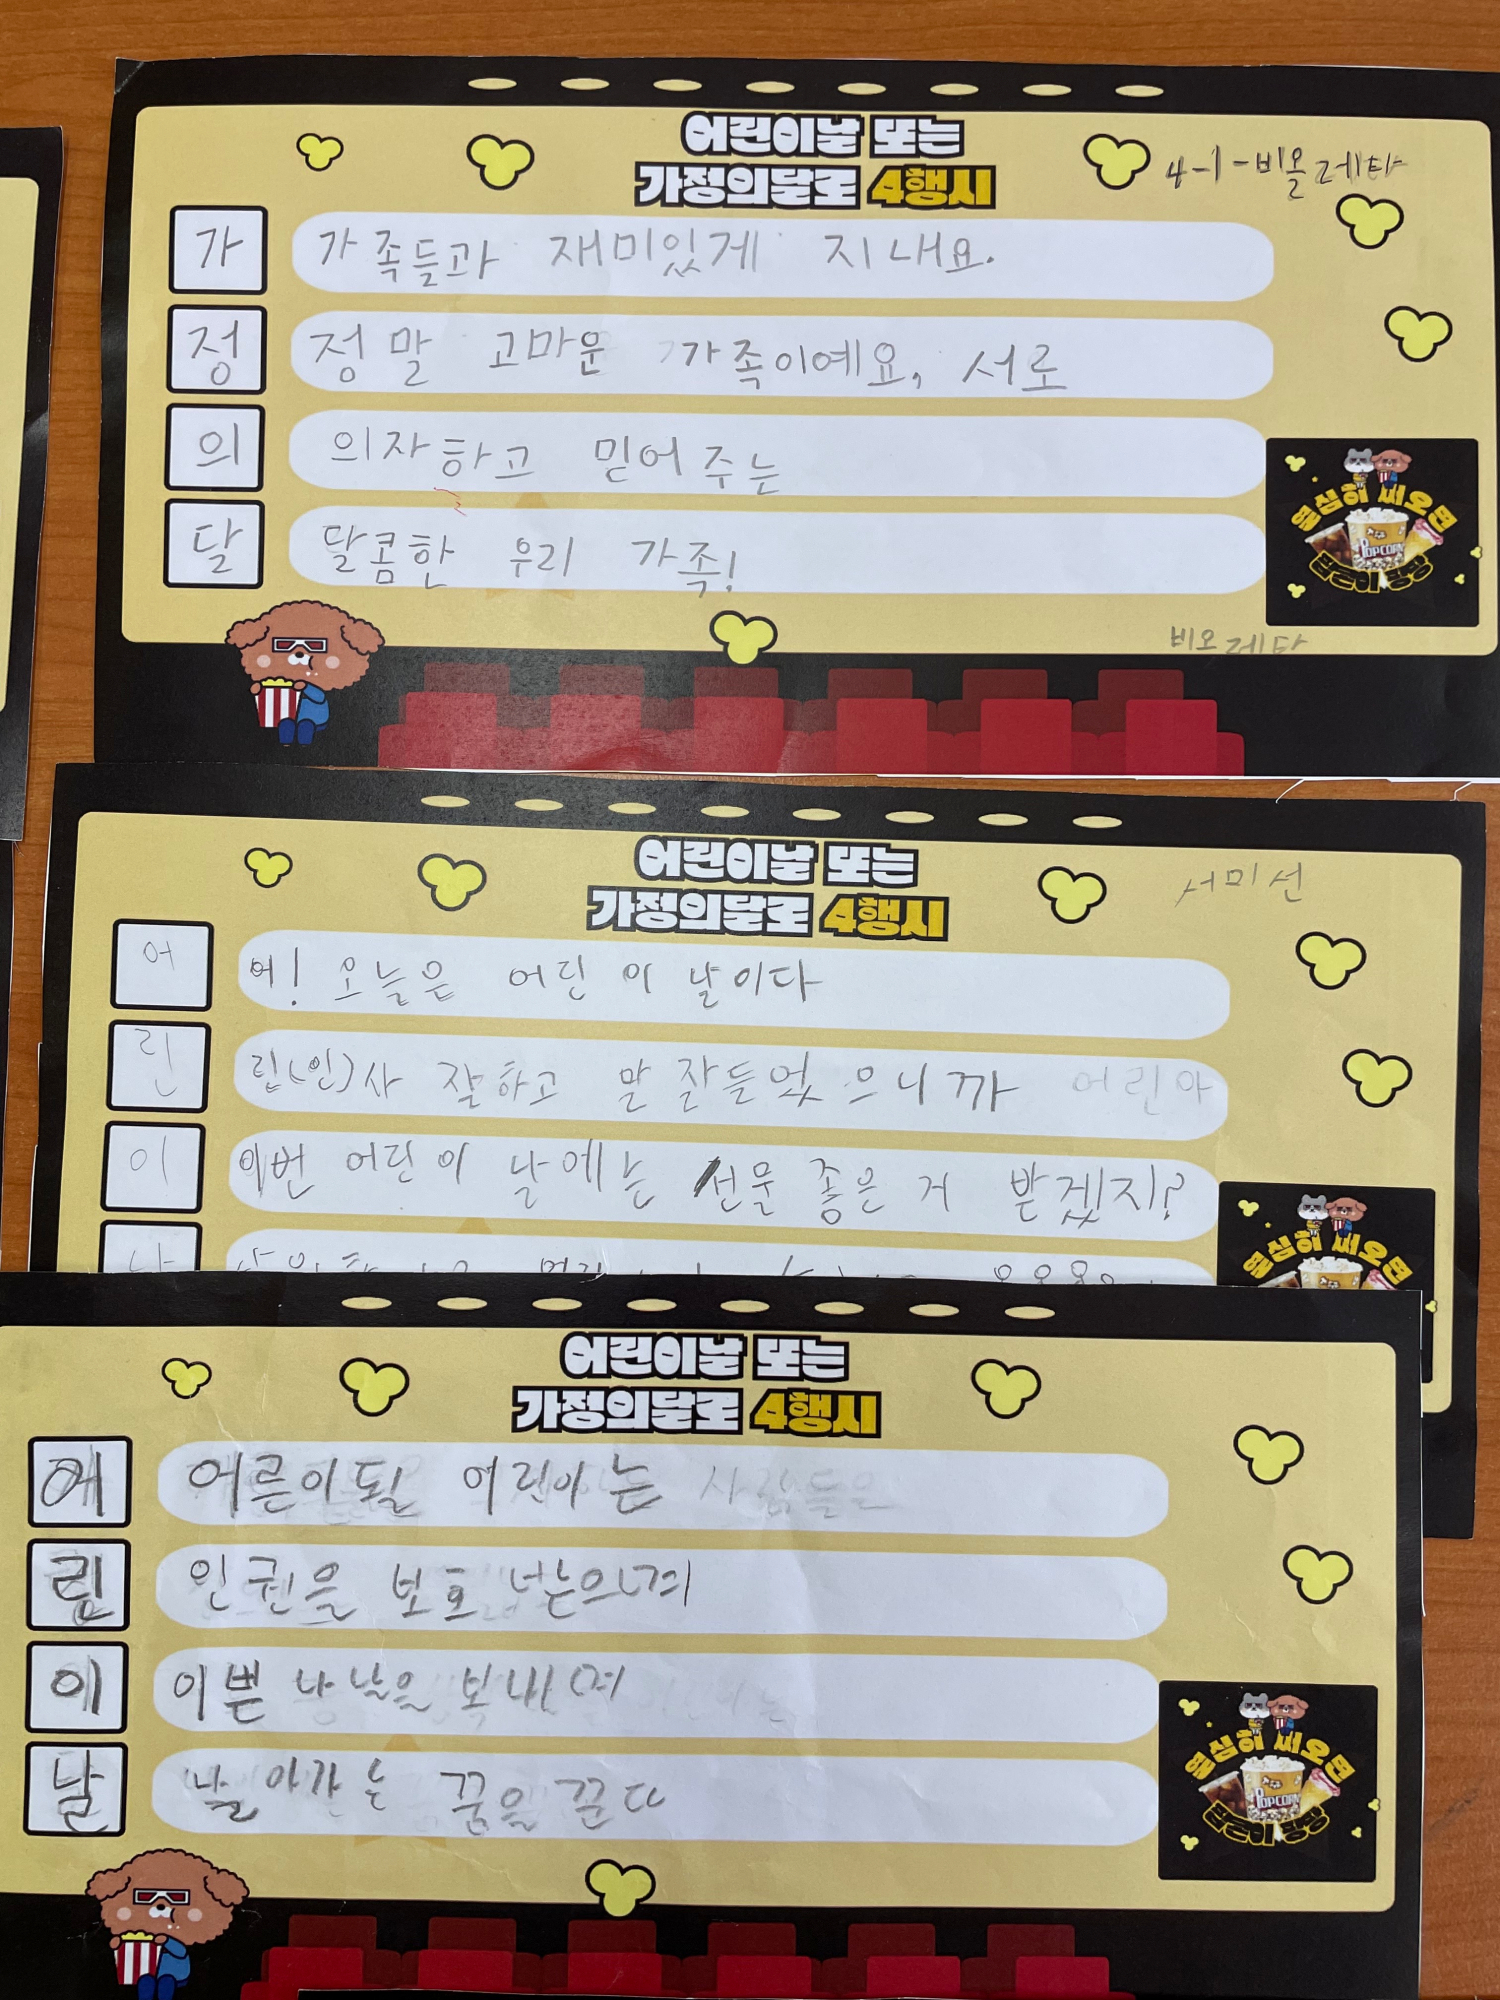 어린이날 또는
가정의달로 4행시
4-1-비올레타
가 가족들과 재미있게 지내요.
정 정말 고마운 가족이예요, 서로
의 의자하고 믿어주는
달 달콤한 우리 가족!
열심히 써오면
POPCORN
비오레타
어린이날 또는
가정의달로 4행시
서미선
어 어! 오늘은 어린이날이다
린 린(인)사 잘하고 말 잘들었으니까 어린아
이 이번 어린이날에는 선물 좋은 거 받겠지?
열심히 써오면
어린이날 또는
가정의달로 4행시
어 어른이될 어린아는 사람들은
린 인권을 보호 받는으며
이 이쁜 나날을 보내며
날 날아가는 꿈을 꾼다
열심히 써오면
POPCORN